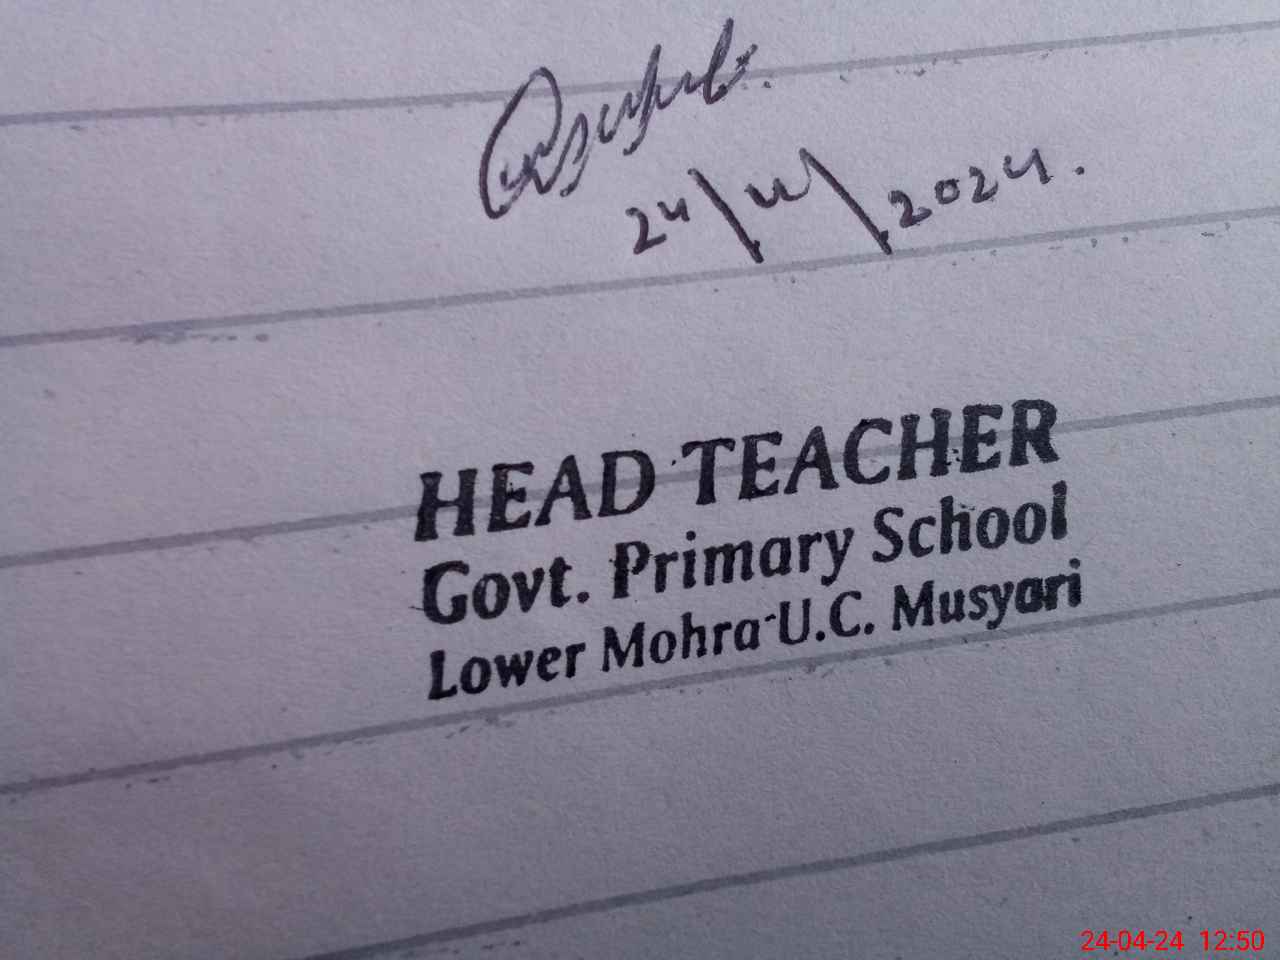 24\4\2024.
HEAD TEACHER
Govt. Primary School
Lower Mohra U.C. Musyari
24-04-24 12:50